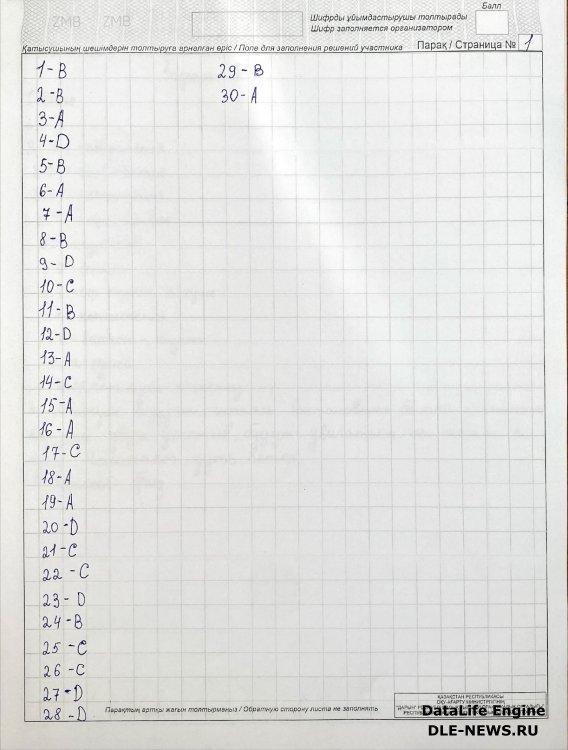 Балл
ZMB ZMB
Шифрды ұйымдастырушы толтырады
Шифр заполняется организатором
Қатысушының шешімдерін толтыруға арналған өріс / Поле для заполнения решений участника
Парақ / Страница № 1
1-B
2-B
3-A
4-D
5-B
6-A
7-A
8-B
9-D
10-C
11-B
12-D
13-A
14-C
15-A
16-A
17-C
18-A
19-A
20-D
21-C
22-C
23-D
24-B
25-C
26-C
27-D
28-D
29-B
30-A
Парақтың артқы жағын толтырмаңыз / Обратную сторону листа не заполнять
ҚАЗАҚСТАН РЕСПУБЛИКАСЫ
ОҚУ-АҒАРТУ МИНИСТРЛІГІНІҢ
DataLife Engine
DLE-NEWS.RU